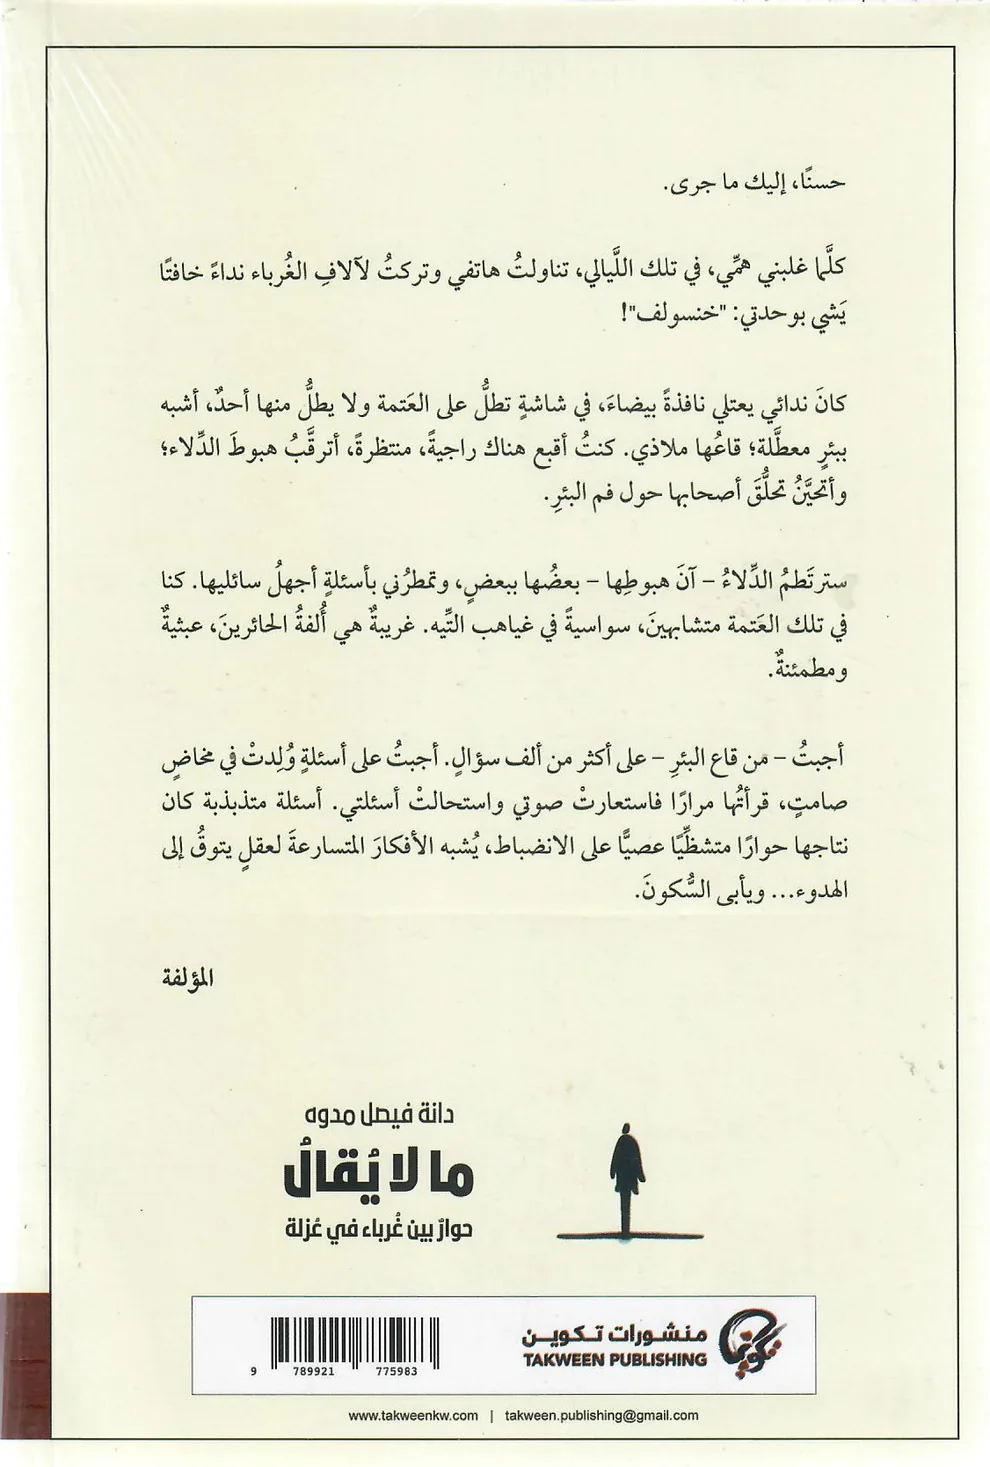 حسنًا، إليك ما جرى.
كلَّما غلبني همِّي، في تلك اللَّيالي، تناولتُ هاتفي وتركتُ لآلافِ الغُرباء نداءً خافتًا
يَشي بوحدتي: "خنسولف"!
كانَ ندائي يعتلي نافذةً بيضاءَ، في شاشةٍ تطلُّ على العَتمة ولا يطلُّ منها أحدٌ، أشبه
ببئرٍ معطَّلة؛ قاعُها ملاذي. كنتُ أقبع هناك راجيةً، منتظرةً، أترقَّبُ هبوطَ الدِّلاء؛
وأتحيَّنُ تحلُّقَ أصحابها حول فم البئرِ.
سترتَطمُ الدِّلاءُ – آنَ هبوطِها – بعضُها ببعضٍ، وتمطرُني بأسئلةٍ أجهلُ سائليها. كنا
في تلك العَتمة متشابهينَ، سواسيةً في غياهب التِّيه. غريبةٌ هي أُلفةُ الحائرينَ، عبثيةٌ
ومطمئنةٌ.
أجبتُ – من قاع البئرِ – على أكثر من ألف سؤالٍ. أجبتُ على أسئلةٍ وُلِدتْ في مخاضٍ
صامتٍ، قرأتُها مرارًا فاستعارتْ صوتي واستحالتْ أسئلتي. أسئلة متذبذبة كان
نتاجها حوارًا متشظِّيًا عصيًّا على الانضباط، يُشبه الأفكارَ المتسارعةَ لعقلٍ يتوقُ إلى
الهدوء... ويأبى السُّكونَ.
المؤلفة
دانة فيصل مدوه
ما لا يُقالُ
حوارٌ بين غُرباء في عُزلة
منشورات تكوين
TAKWEEN PUBLISHING
تكوين
9 789921 775983
www.takweenkw.com | takween.publishing@gmail.com